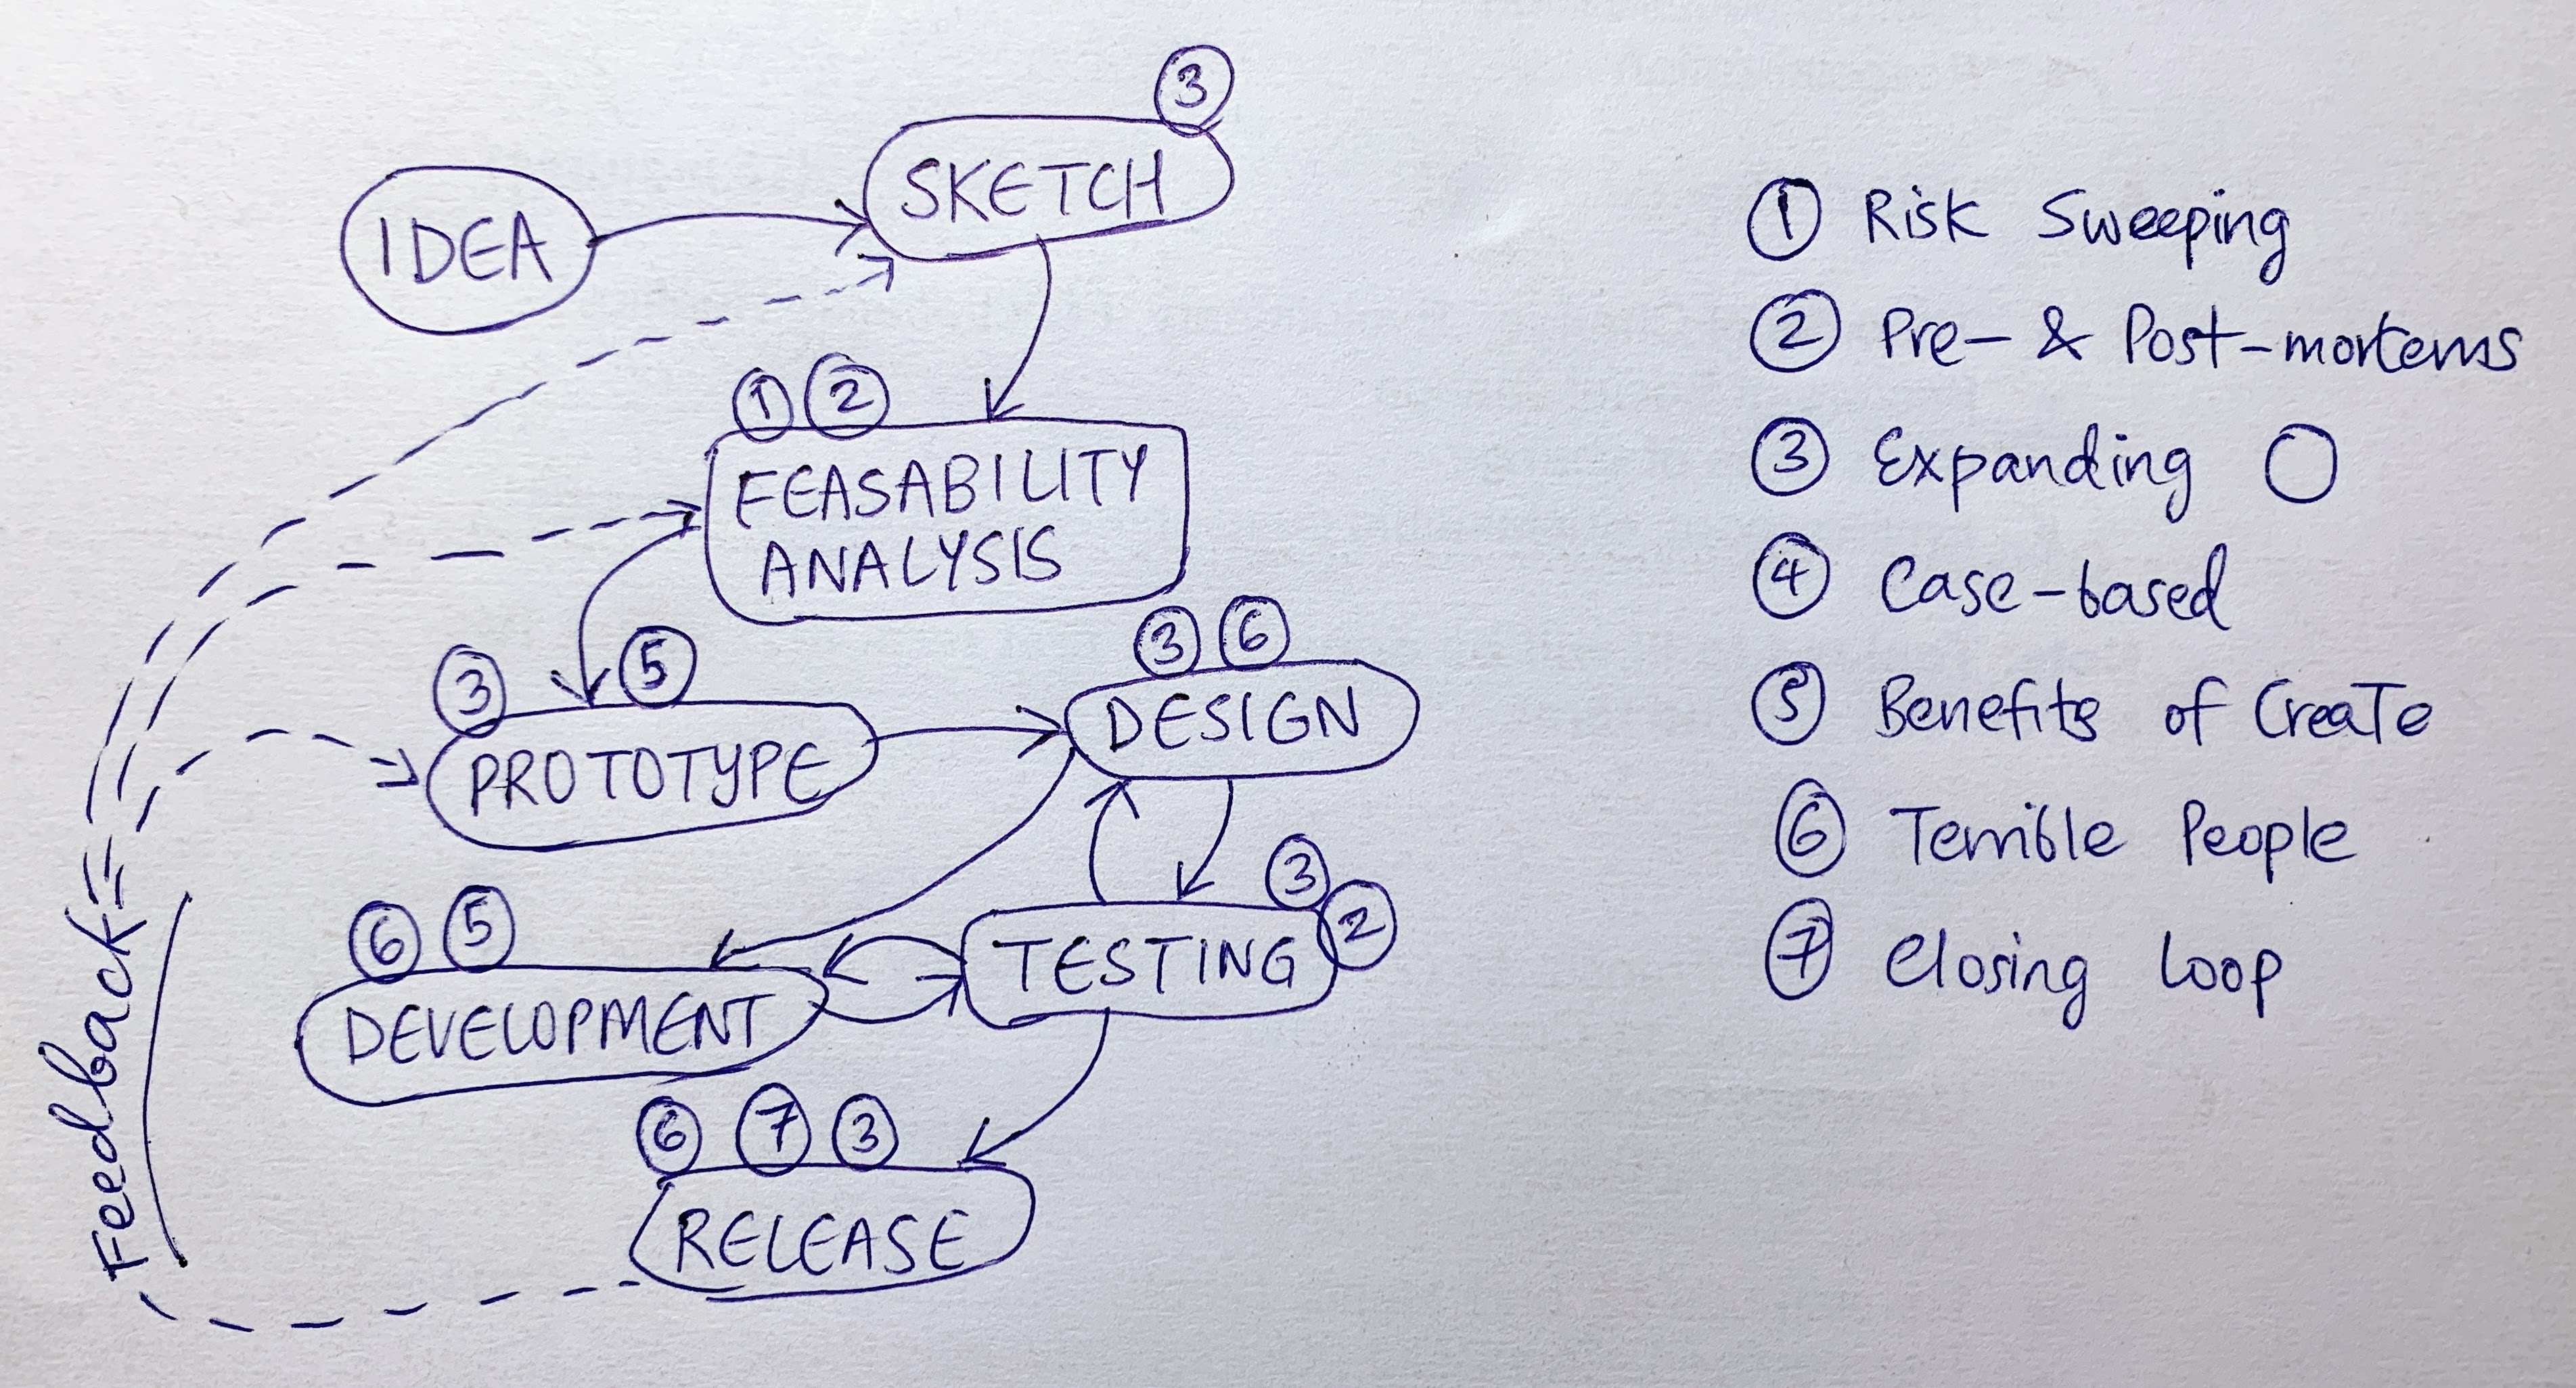 3
SKETCH
IDEA
1 2
FEASABILITY
ANALYSIS
3 5
PROTOTYPE
3 6
DESIGN
6 5
DEVELOPMENT
3
2
TESTING
6 7 3
RELEASE
Feedback
1 Risk Sweeping
2 Pre- & Post-mortems
3 Expanding
4 Case-based
5 Benefits of Create
6 Terrible People
7 Closing Loop